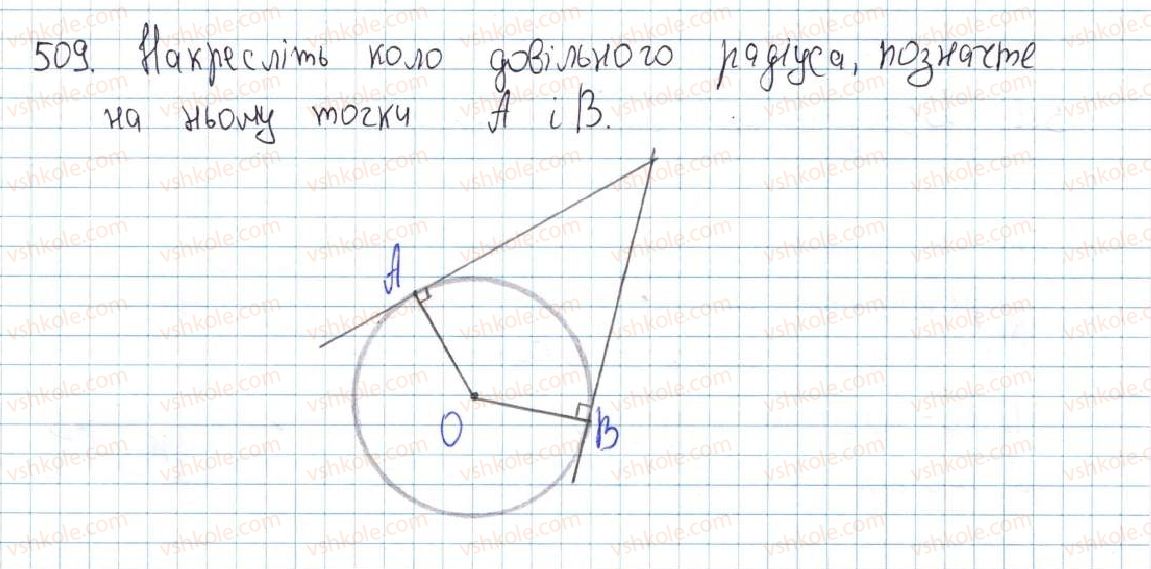 509. Накресліть коло довільного радіуса, позначте
на ньому точки А і В.
А
О
В
vshkole.com